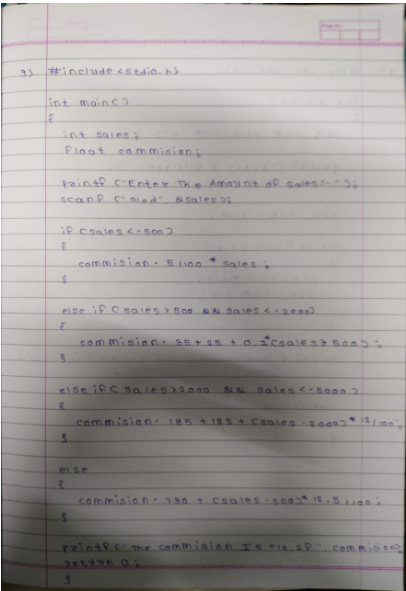 9) #include <stdio.h>
int main()
{
int sales;
float commision;
printf ("Enter The Amount of sales:- ");
scanf ("%d", &sales);
if (sales <=500)
{
commision = 5/100 * sales ;
}
else if ( sales > 500 && sales <= 2000)
{
commision = 35+25 + 0.1*(sales > 500);
}
else if ( sales >2000 && sales <=5000 )
{
commision = 185 + 185 + (sales - 2000)* 12/100;
}
else
{
commision = 780 + (sales - 500)* 12.5/100;
}
printf ("The commision Is %.2f", commision);
return 0;
}